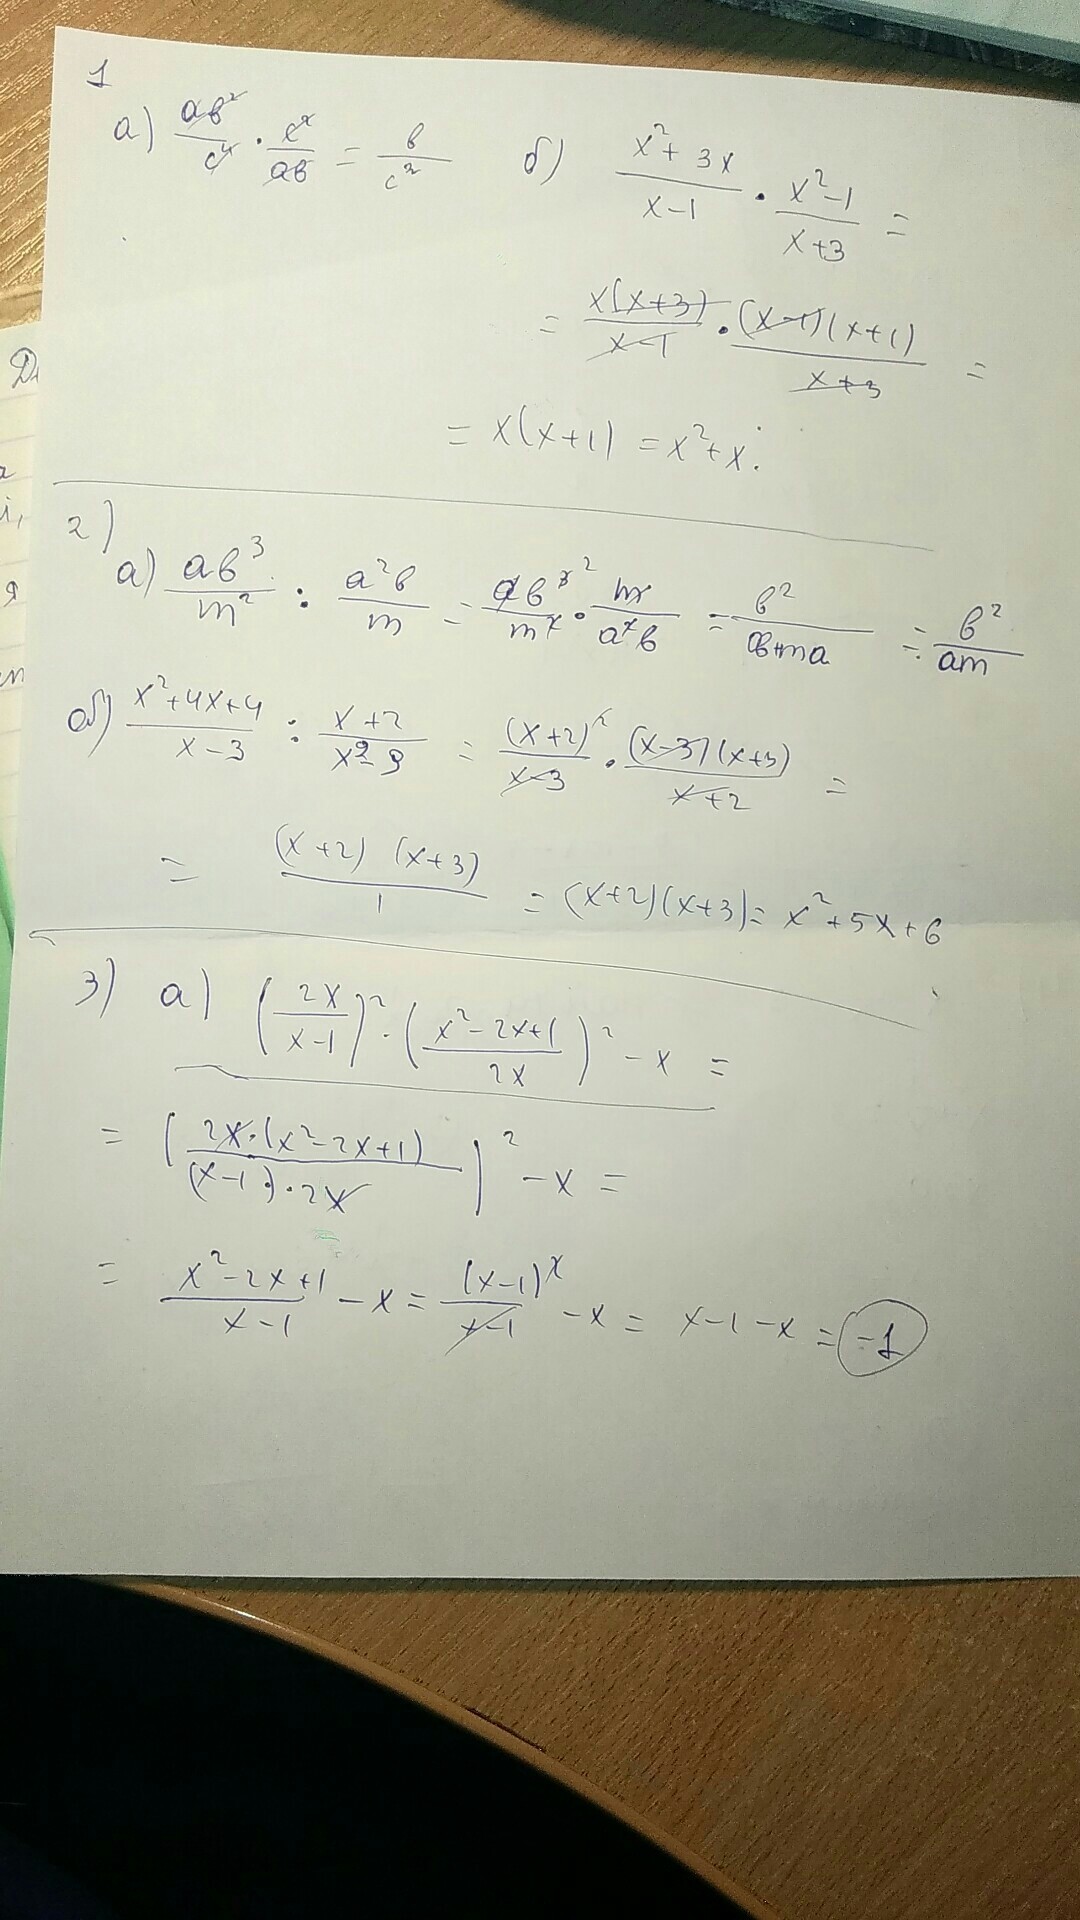 1
а) ab²/c⁴ · c²/ab = b/c²   б) x²+3x/x-1 · x²-1/x+3 =
= x(x+3)/x-1 · (x-1)(x+1)/x+3 =
= x(x+1) = x²+x.
2)
а) ab³/m² : a²b/m = ab³/m² · m/a²b = b²/ma = b²/am
б) x²+4x+4/x-3 : x+2/x²-9 = (x+2)²/x-3 · (x-3)(x+3)/x+2 =
= (x+2)(x+3)/1 = (x+2)(x+3) = x²+5x+6
3) а) (2x/x-1)² · (x²-2x+1/2x)² - x =
= (2x·(x²-2x+1)/(x-1)·2x)² - x =
= x²-2x+1/x-1 - x = (x-1)²/x-1 - x = x-1-x = -1